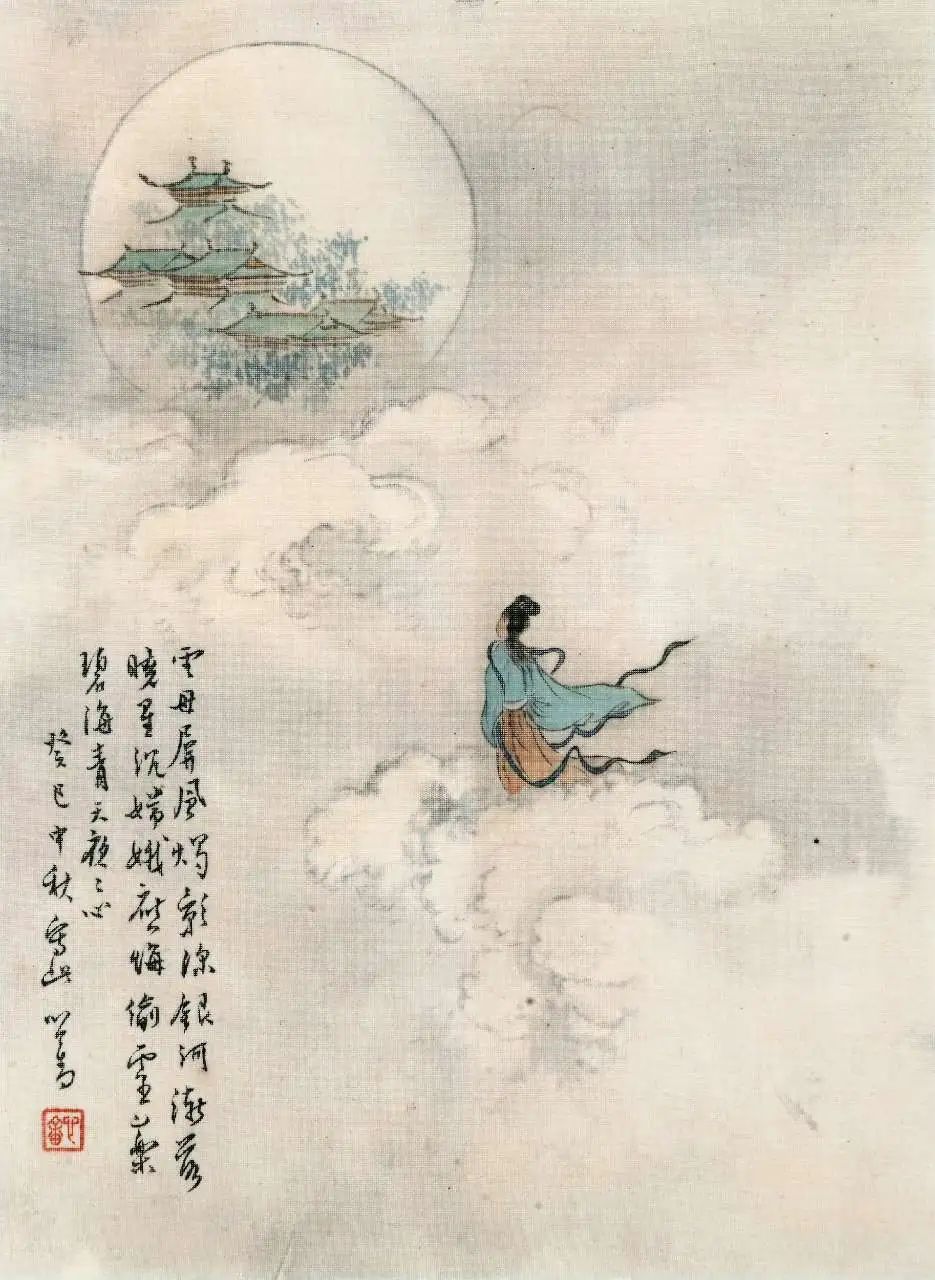 雲母屏風燭影深銀河漸落
曉星沉嫦娥應悔偷靈藥
碧海青天夜〻心
癸巳中秋寫此 心畬